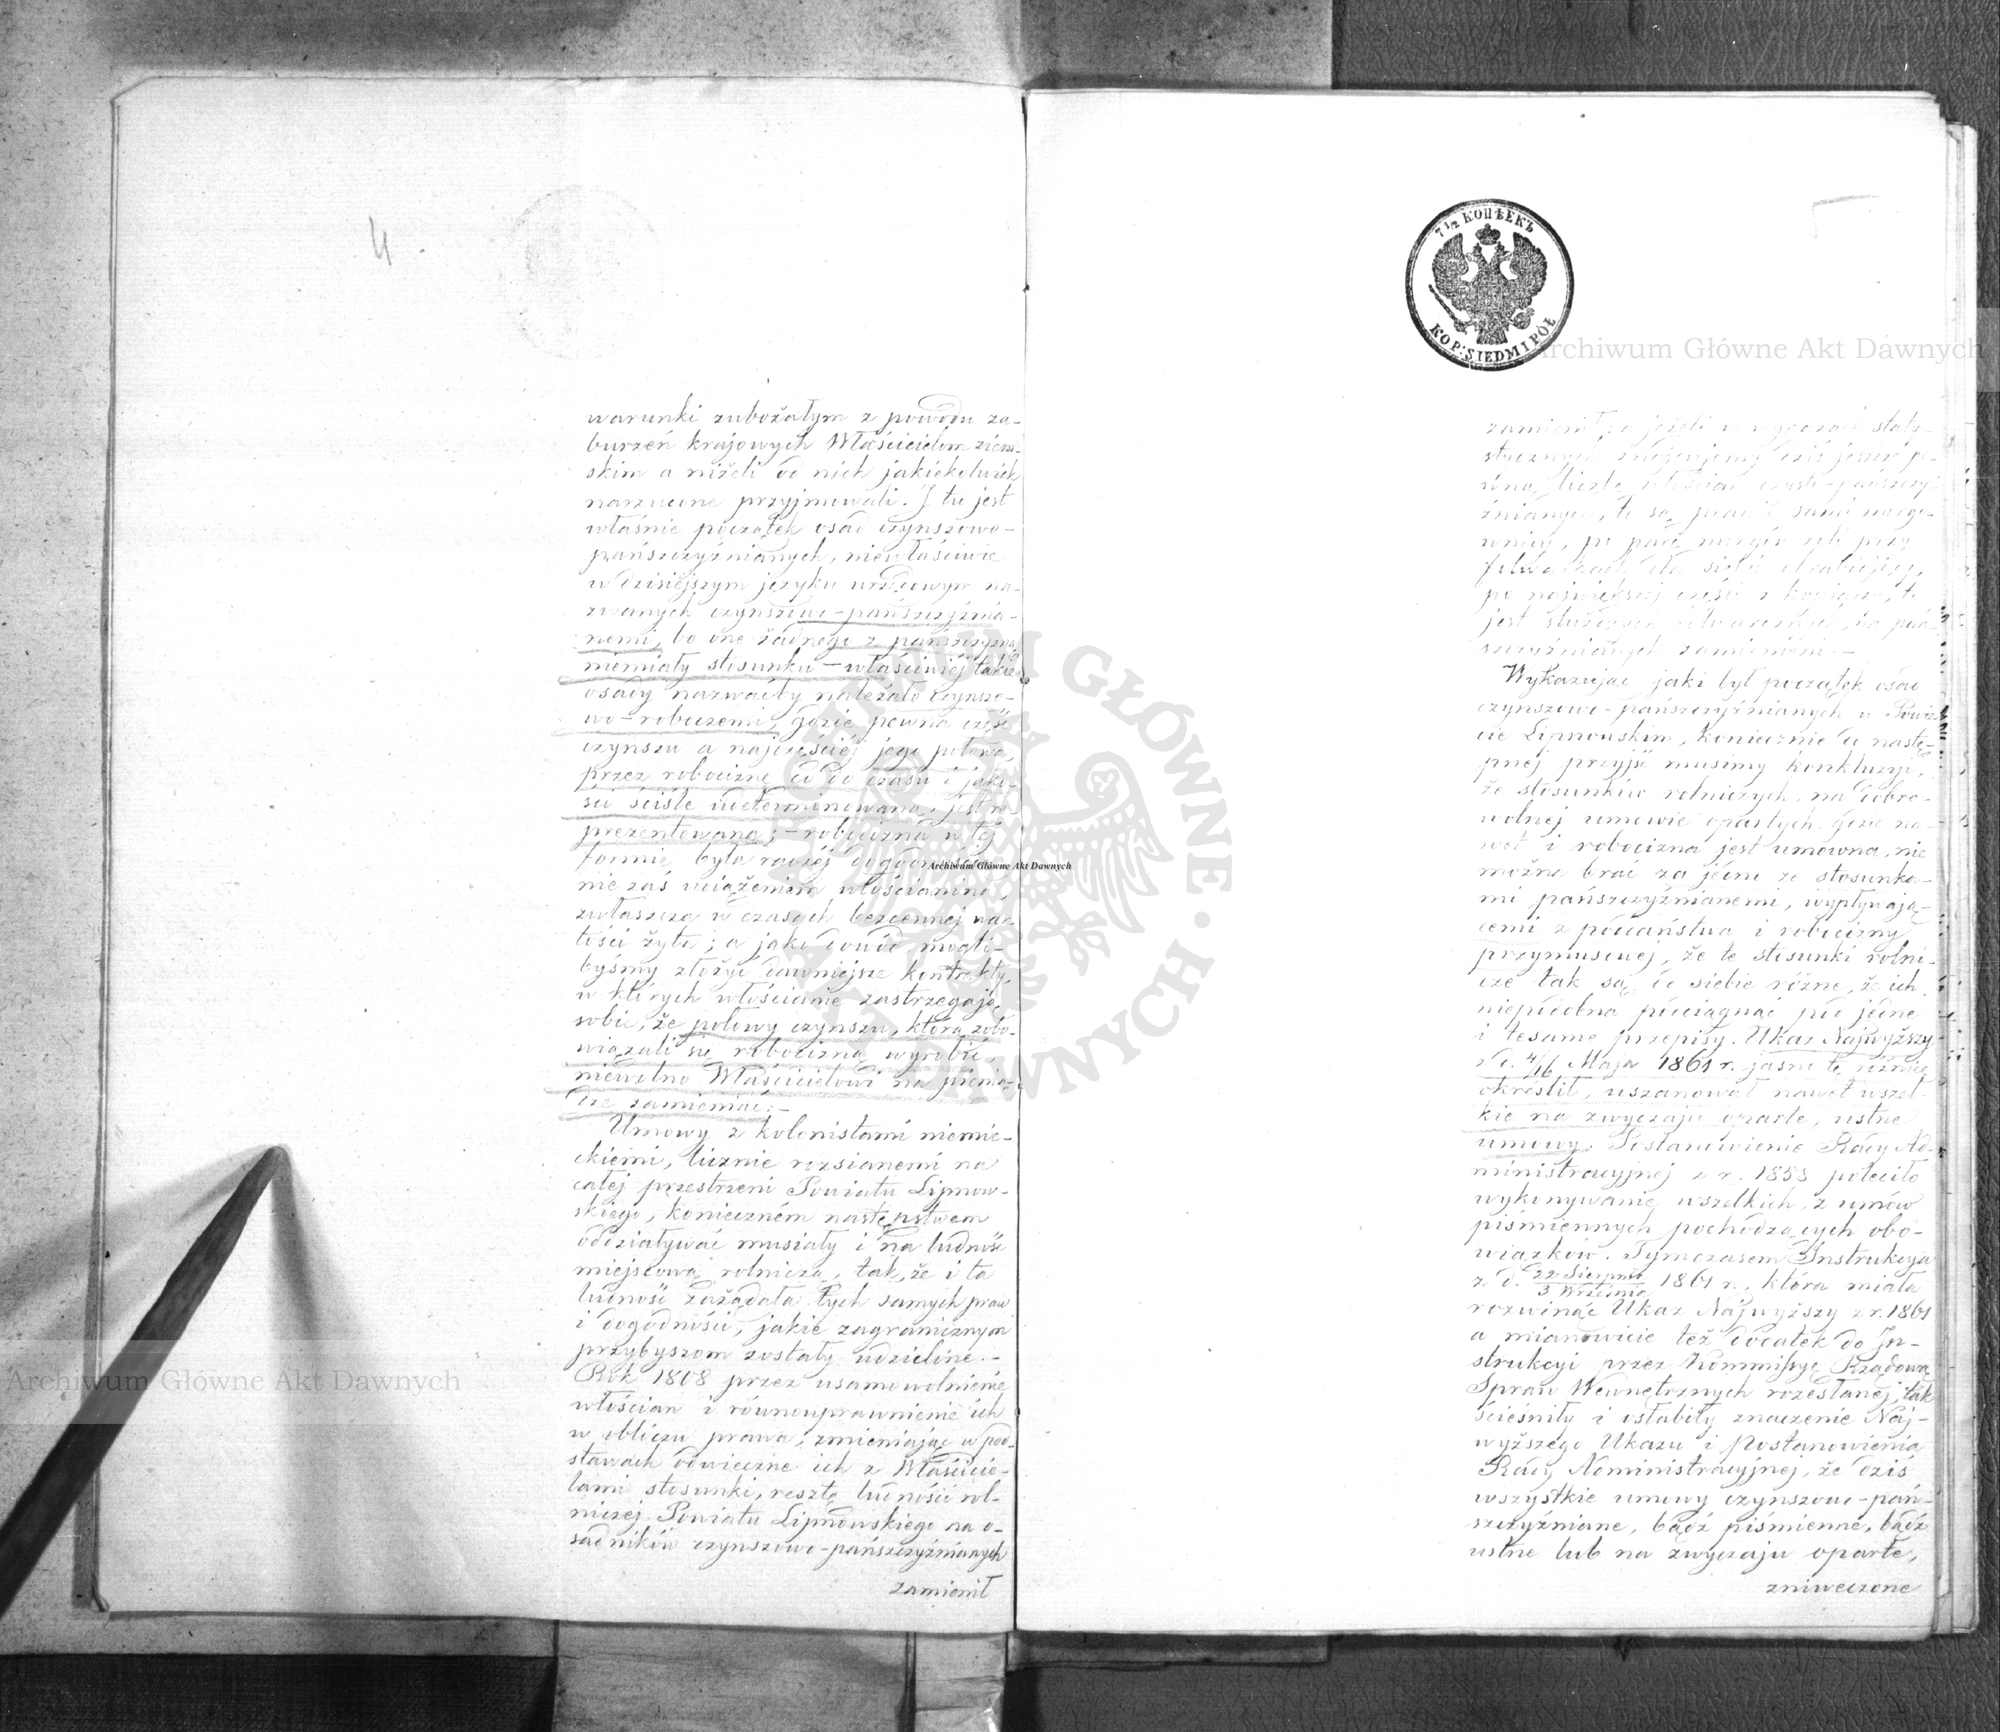 4.
warunki zubożałym z powodu za-
burzeń krajowych Właścicielom ziem-
skim a niżeli od nich jakiekolwiek
narzucone przyjmowali. I tu jest
właśnie początek osad czynszowo-
pańszczyźnianych, niewłaściwie
w dzisiejszym języku urzędowym na-
zwanych czynszowo-pańszczyźnia-
nemi, bo one żadnego z pańszczyzną
niemiały stosunku – właściwiej takie
osady nazwaćby należało czynszo-
wo-roboczemi, gdzie pewna część
czynszu a najczęściéj jego połowa
przez robociznę co do czasu i jako-
ści ściśle udeterminowaną, jest re-
prezentowana; – robocizna w téj
formie była raczéj
nie zaś uciążeniem włościanina,
zwłaszcza w czasach bezcennej war-
tości żyta; a jako dowód mogli-
byśmy złożyć dawniejsze kontrakty,
w których włościanie zastrzegają
sobie, że połowy czynszu, którą zobo-
wiązali się robocizną wyrobić,
niewolno Właścicielowi na pienią-
dze zamieniać. –
Umowy z kolonistami niemie-
ckiemi, licznie rozsianemi na
całéj przestrzeni Powiatu Lipnow-
skiego, konieczném następstwem
oddziaływać musiały i na ludność
miejscową rolniczą, tak, że i ta
ludność zażądała tych samych praw
i dogodności, jakie zagranicznym
przybyszom zostały udzielone. –
Rok 1808 przez usamowolnienie
włościan i równouprawnienie ich
w obliczu prawa, zmieniając w pod-
stawach odwieczne ich z Właścicie-
lami stosunki, resztę ludności rol-
niczej Powiatu Lipnowskiego na o-
sadników czynszowo-pańszczyźnianych
zamienił
7 ½ КОПѢЕКЪ
KOP: SIEDM I PÓŁ
zamienił; a jeżeli w wykazach staty-
stycznych znajdujemy dziś jeszcze pe-
wną liczbę włościan czysto-pańszczy-
źnianych, to są prawie sami morgo-
wnicy, po parę morgów roli przy
folwarkach dla siebie
po największej części z
jest służących na pań-
szczyźnianych zamienieni. –
Wykazując jaki był początek osad
czynszowo-pańszczyźnianych w Powie-
cie Lipnowskim, koniecznie do nastę-
pnej przyjść musimy konkluzyi,
że stosunków rolniczych, na dobro-
wolnej umowie opartych, gdzie na-
wet i robocizna jest umowna, nie
można brać za jedno ze stosunka-
mi pańszczyźnianemi, wypływają-
cemi z poddaństwa i robocizny
przymusowej, że te stosunki rolni-
cze tak są od siebie różne, że ich
niepodobna podciągnąć pod jedne
i tesame przepisy. Ukaz Najwyższy
z d. 4/16 Maja 1861 r. jasno tę różnicę
określił, uszanował nawet wszel-
kie na zwyczaju oparte, ustne
umowy. Postanowienie Rady Ad-
ministracyjnej z r. 1858 poleciło
wykonywanie wszelkich, z umów
piśmiennych pochodzących obo-
wiązków. Tymczasem Instrukcya
z d. 22 Sierpnia/3 Września 1861 r., która miała
rozwinąć Ukaz Najwyższy z r. 1861
a mianowicie też dodatek do In-
strukcyi przez Kommissyę Rządową
Spraw Wewnętrznych rozesłanej, tak
ścieśniły i osłabiły znaczenie Naj-
wyższego Ukazu i Postanowienia
Rady Administracyjnej, że dziś
wszystkie umowy czynszowo-pań-
szczyźniane, bądź piśmienne, bądź
ustne lub na zwyczaju oparte,
zniweczone
Archiwum Główne Akt Dawnych
Archiwum Główne Akt Dawnych
Archiwum Główne Akt Dawnych
ARCHIWUM GŁÓWNE AKT DAWNYCH